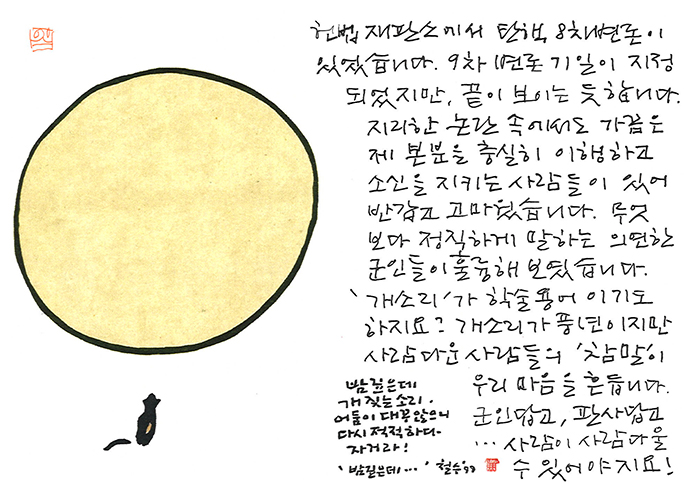 헌법 재판소에서 탄핵 8차변론이
있었습니다. 9차 변론 기일이 지정
되었지만, 끝이 보이는 듯합니다.
지리한 논란 속에서도 가끔은
제 본분을 충실히 이행하고
소신을 지키는 사람들이 있어
반갑고 고마웠습니다. 무엇
보다 정직하게 말하는 의연한
군인들이 훌륭해 보였습니다.
'개소리'가 학술용어 이기도
하지요? 개소리가 풍년이지만
사람다운 사람들의 '참말'이
우리 마음을 흔듭니다.
군인답고, 판사답고
... 사람이 사람다울
수 있어야지요!
밤 깊은데
개 짖는 소리.
어둠이 대꾸 않으니
다시 적적하다-
자거라!
'밤깊은데...' 철수'99